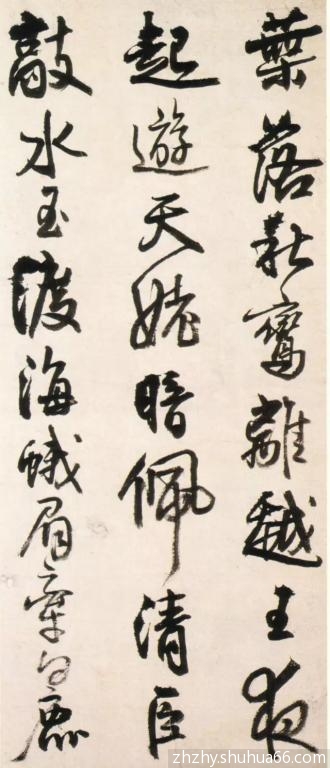 葉落秋鸞離越王夜
起遊天姥暗佩清臣
敲水玉渡海蛾眉牽白鹿
zhzhy.shuhua66.com